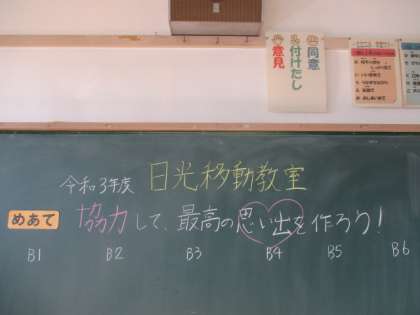 同意
付けたし
意見
令和3年度 日光移動教室
めあて 協力して、最高の思い出を作ろう!
B1 B2 B3 B4 B5 B6